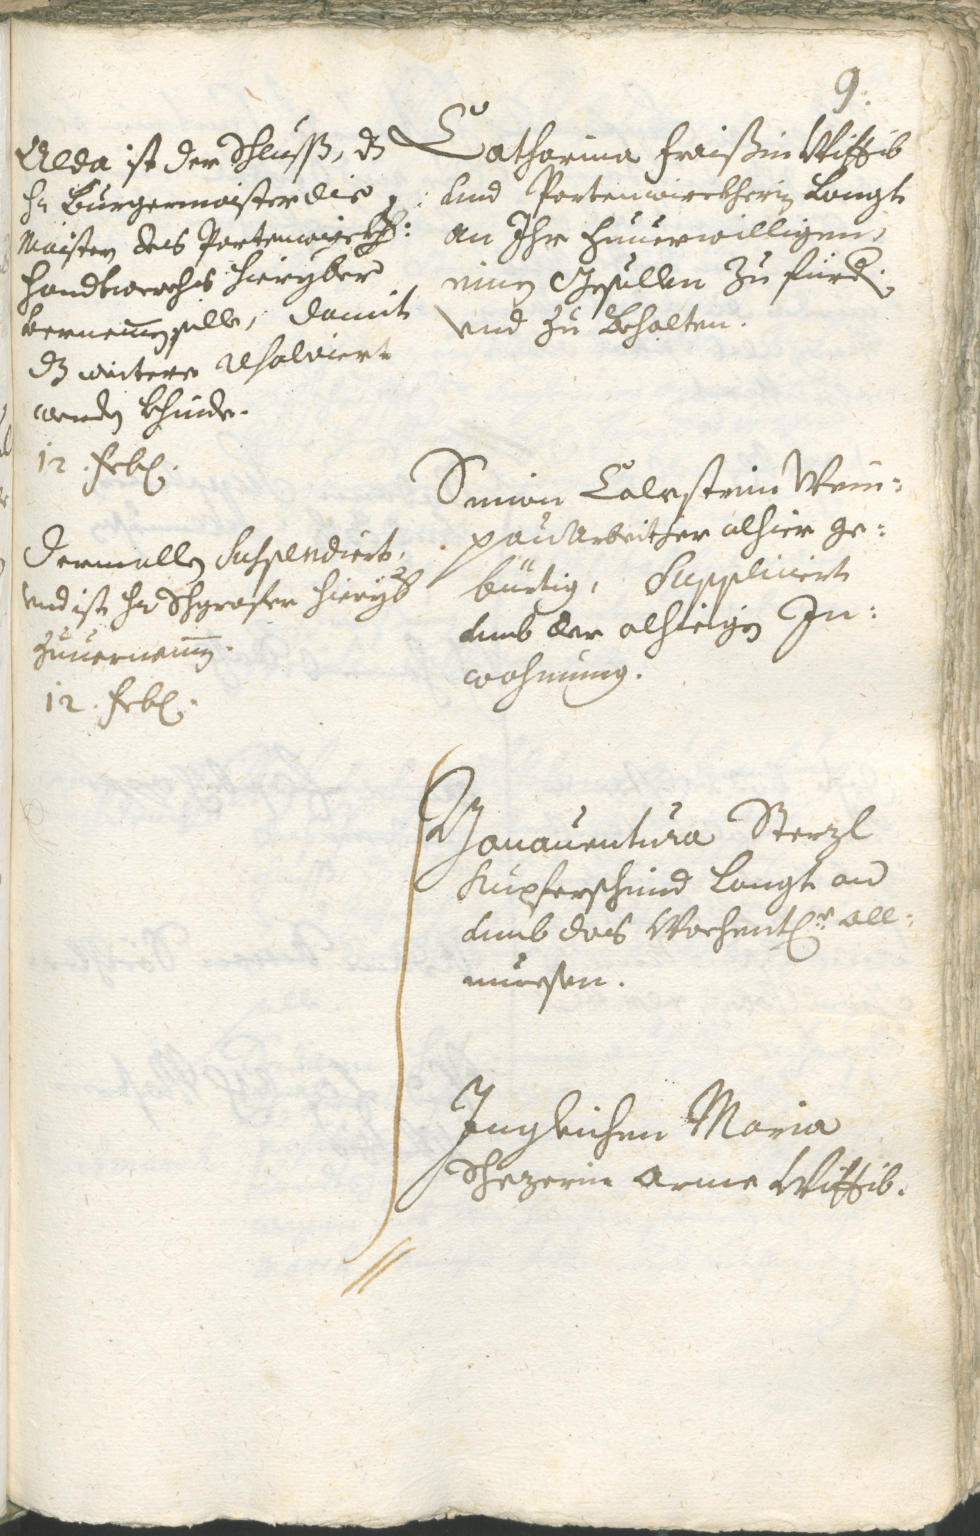 9.
Alda ist der Schluss, dz
Hr Burgermaister die
Maister des Portenwirckh:
Handtwerchs hieryber
vernemmen solle, damit
dz weitere resolviert
werden khinde.
12. Feb.
Dermallen suspendiert,
vnd ist Hr hieryb
zuuernemmen.
12. Feb.
Catharina Fraißin Wittib
und Portenwirckherin langt
an Ihr zuuerwilligen,
einen Gesellen zu fürd:
vnd zu behalten.
Simon Wein-
pauarbeither alhier ge-
bürtig, Suppliciert
umb der alhieigen In-
wohnung.
Bonauentura Sterzl
Kupferschmid langt an
umb das Wochentl: all-
muesen.
Ingleichen Maria
arme Wittib.